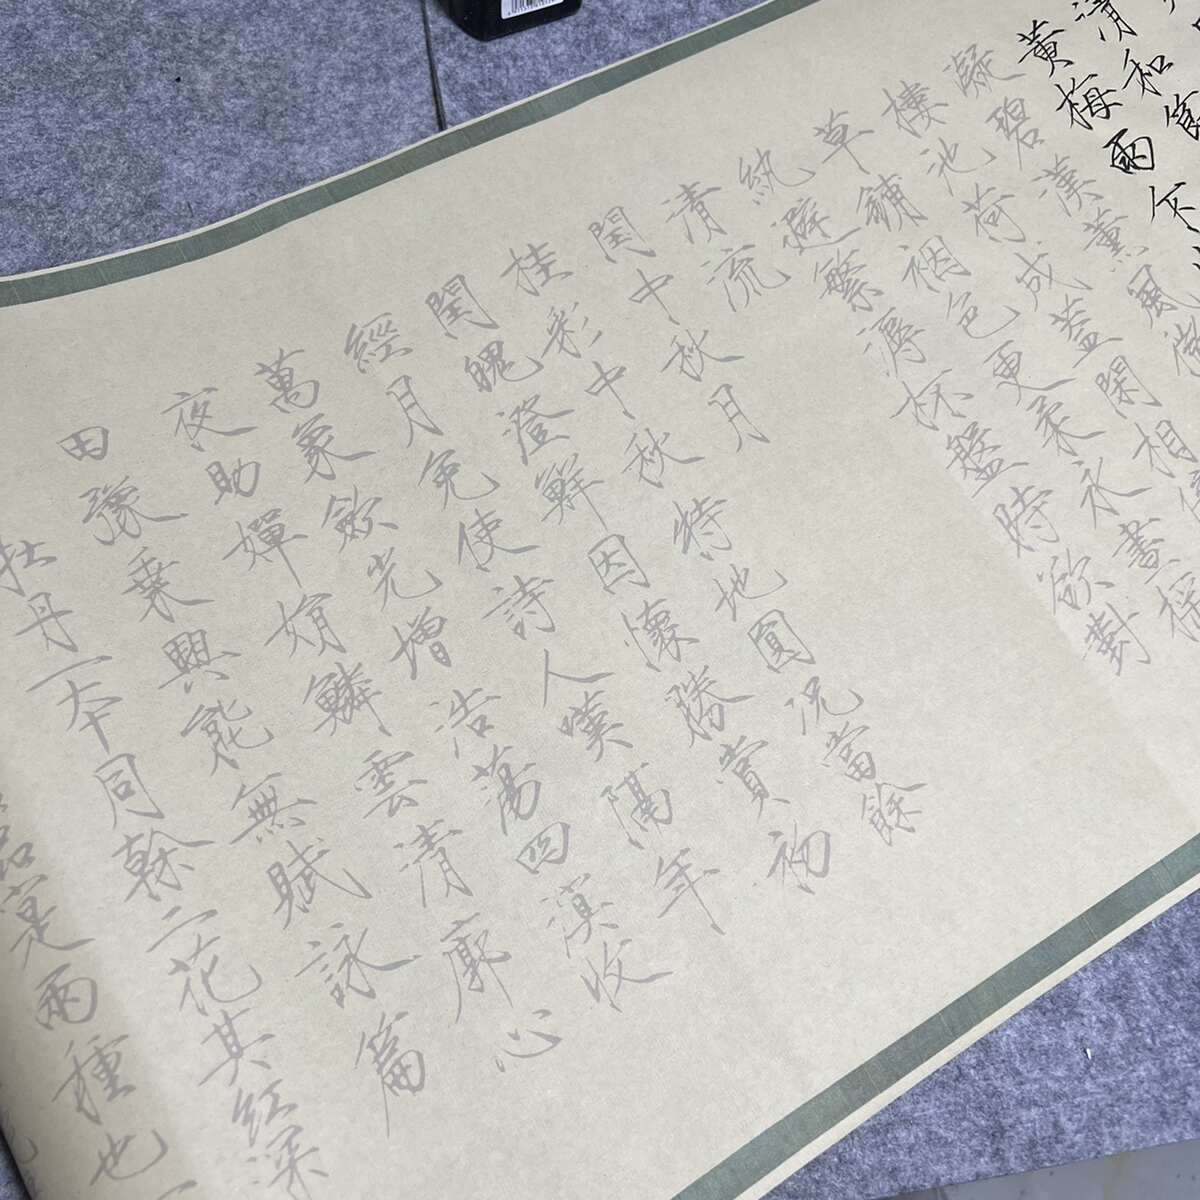 清和
黃梅雨乍
凝碧漢薰風微
樓池荷成蓋閑相倚
草鋪裀色更柔永晝搖
紈避繁溽杯盤時欲對
清流
閏中秋月
桂彩中秋特地圓況當餘
閏魄澄鮮因懷勝賞初
經月免使詩人嘆隔年
萬象歛光增浩蕩四溟收
夜助嬋娟鱗雲清廓心
田豫乘興能無賦詠篇
牡丹一本同幹二花其紅深
名品寔兩種也一